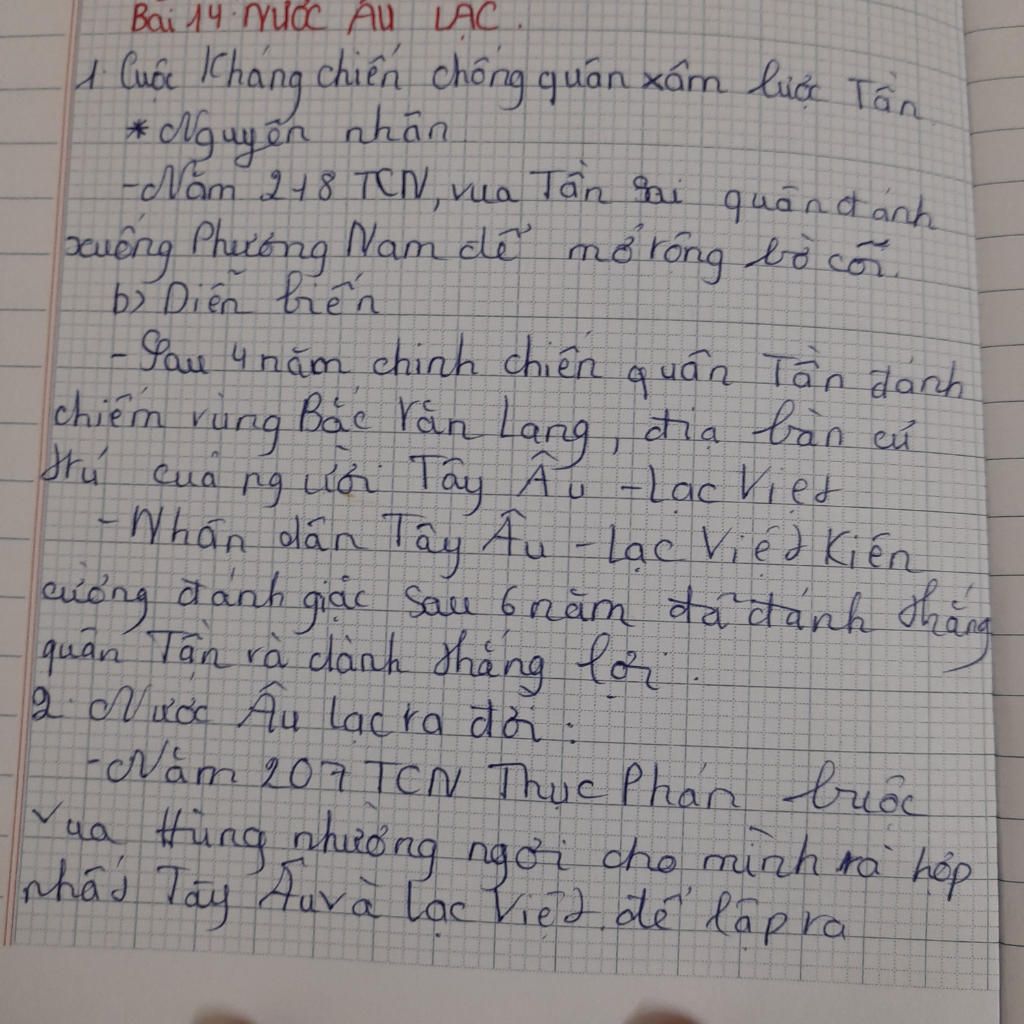 Bài 14. NƯỚC ÂU LẠC.
1. Cuộc Kháng chiến chống quân xâm lược Tần
* Nguyên nhân
- Năm 218 TCN, vua Tần sai quân đánh
xuống Phương Nam để mở rộng bờ cõi.
b) Diễn biến
- Sau 4 năm chinh chiến quân Tần đánh
chiếm vùng Bắc Văn Lang, địa bàn cư
trú của người Tây Âu - Lạc Việt
- Nhân dân Tây Âu - Lạc Việt Kiên
cường đánh giặc sau 6 năm đã đánh thắng
quân Tần và dành thắng lợi.
2. Nước Âu Lạc ra đời:
- Năm 207 TCN Thục Phán buộc
Vua Hùng nhường ngôi cho mình và hợp
nhất Tây Âu và Lạc Việt để lập ra